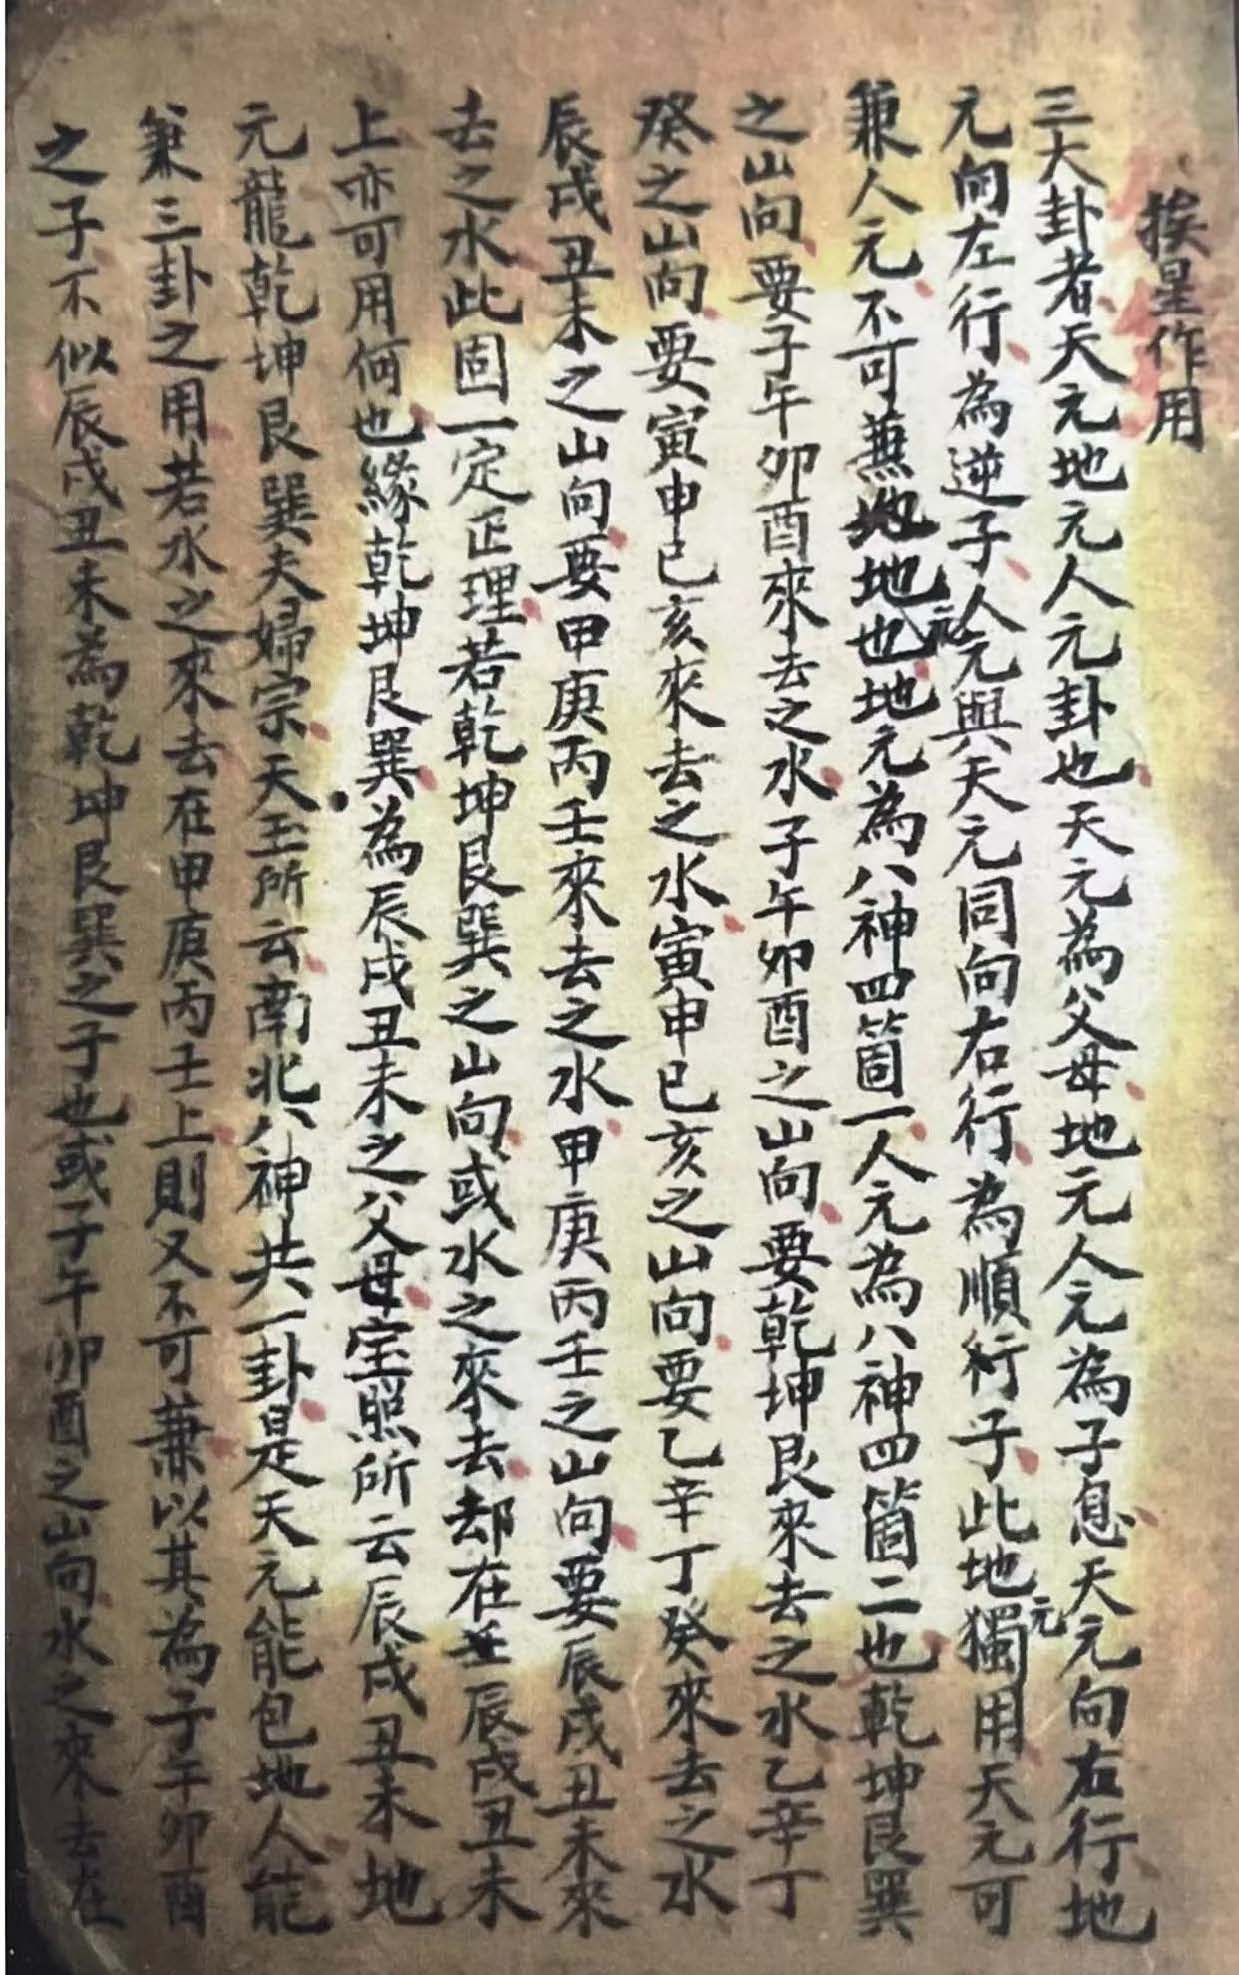 挨星作用
三大卦者天元地元人元卦也天元為父母地元人元為子息天元向右行地
元向左行為逆子人元與天元同向右行為順行子此地元獨用天元可
兼人元不可兼地地也地元為八神四箇一人元為八神四箇二也乾坤艮巽
之山向要子午卯酉來去之水子午卯酉之山向要乾坤艮來去之水乙辛丁
癸之山向要寅申巳亥來去之水寅申巳亥之山向要乙辛丁癸來去之水
辰戌丑未之山向要甲庚丙壬來去之水甲庚丙壬之山向要辰戌丑未來
去之水此固一定正理若乾坤艮巽之山向或水之來去却在辰戌丑未
上亦可用何也緣乾坤艮巽為辰戌丑未之父母宝照所云辰戌丑未地
元龍乾坤艮巽夫婦宗天玉所云南北八神共一卦是天元能包地人能
兼三卦之用若水之來去在甲庚丙壬上則又不可兼以其為子午卯酉
之子不似辰戌丑未為乾坤艮巽之子也或子午卯酉之山向水之來去在